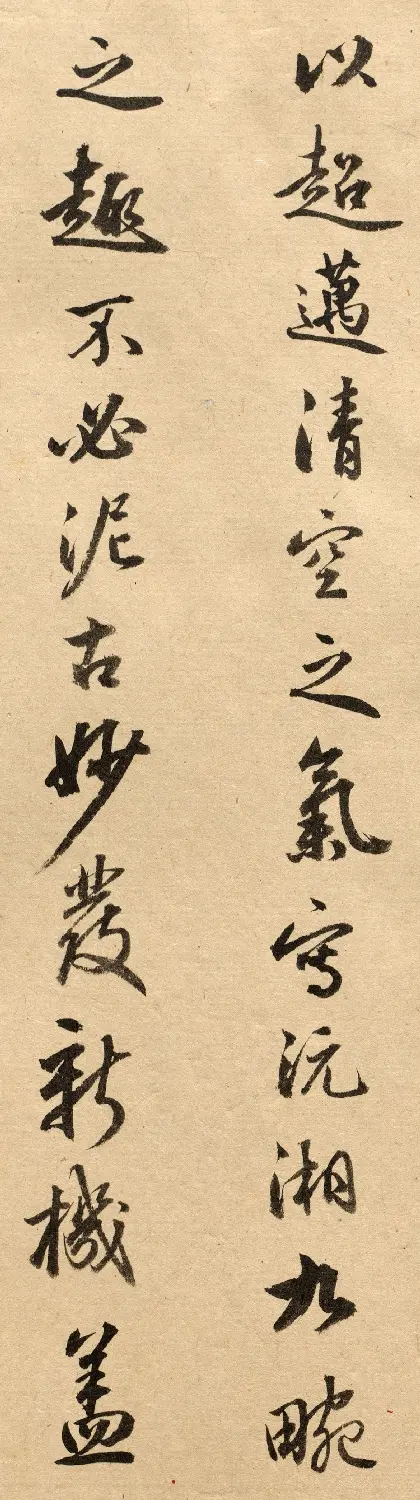 以超邁清空之氣寫沅湘九畹
之趣不必泥古妙發新機蓋